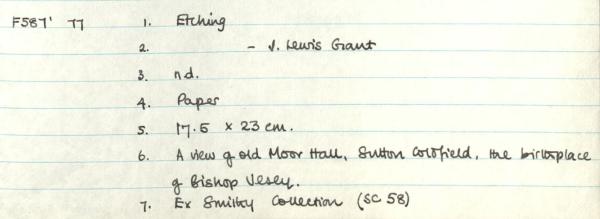 F587' 77 1. Etching
2. - J. Lewis Grant
3. n.d.
4. Paper
5. 17.5 x 23 cm.
6. A view of old Moor Hall, Sutton Coldfield, the birthplace
of Bishop Vesey.
7. Ex Smilby Collection (SC 58)